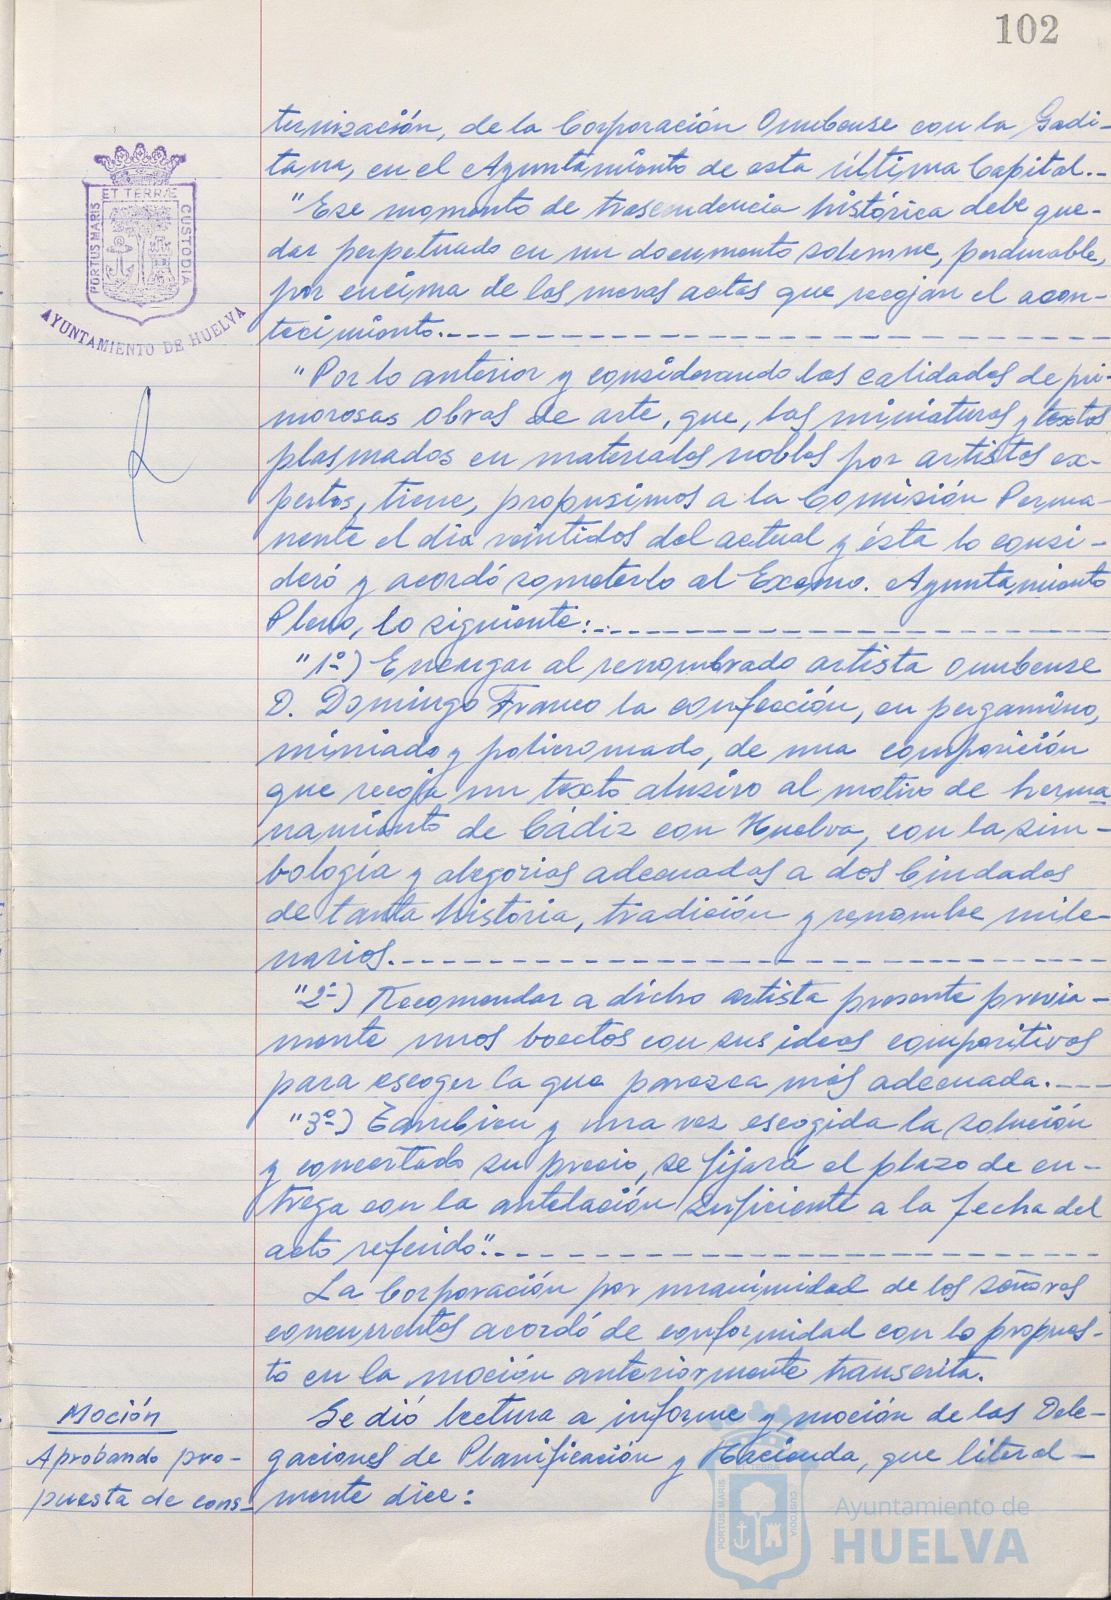 102
ternización, de la Corporación Onubense con la Gadi-
tana, en el Ayuntamiento de esta última Capital.-
"Ese momento de trascendencia histórica debe que-
dar perpetuado en un documento solemne, perdurable,
por encima de las meras actas que recojan el acon-
tecimiento.
"Por lo anterior y considerando las calidades de pri-
morosas obras de arte, que, las miniaturas y textos
plasmados en materiales nobles por artistas ex-
pertos, tiene, propusimos a la Comisión Perma-
nente el día veintidos del actual y ésta lo consi-
deró y acordó someterlo al Excmo. Ayuntamiento
Pleno, lo siguiente:
"1º) Encargar al renombrado artista onubense
D. Domingo Franco la confección, en pergamino,
miniado y policromado, de una composición
que recoja un texto alusivo al motivo de herma
namiento de Cádiz con Huelva, con la sim-
bología y alegorias adecuadas a dos Ciudades
de tanta historia, tradición y renombre mile-
narios.
"2º) Recomendar a dicho artista presente previa-
mente unos bocetos con sus ideas compositivas
para escoger la que parezca más adecuada.
"3º) Tambien y una vez escogida la solución
y concertado su precio, se fijará el plazo de en-
trega con la antelación suficiente a la fecha del
acto referido".
La Corporación por unanimidad de los señores
concurrentes acordó de conformidad con lo propues-
to en la moción anteriormente transcrita.
Moción
Aprobando pro-
puesta de cons-
Se dió lectura a informe y moción de las Dele-
gaciones de Planificación y Hacienda, que literal-
mente dice:
PORTUS MARIS
ET TERRÆ
CUSTODIA
AYUNTAMIENTO DE HUELVA
PORTUS MARIS
ET TERRÆ
CUSTODIA
Ayuntamiento de
HUELVA